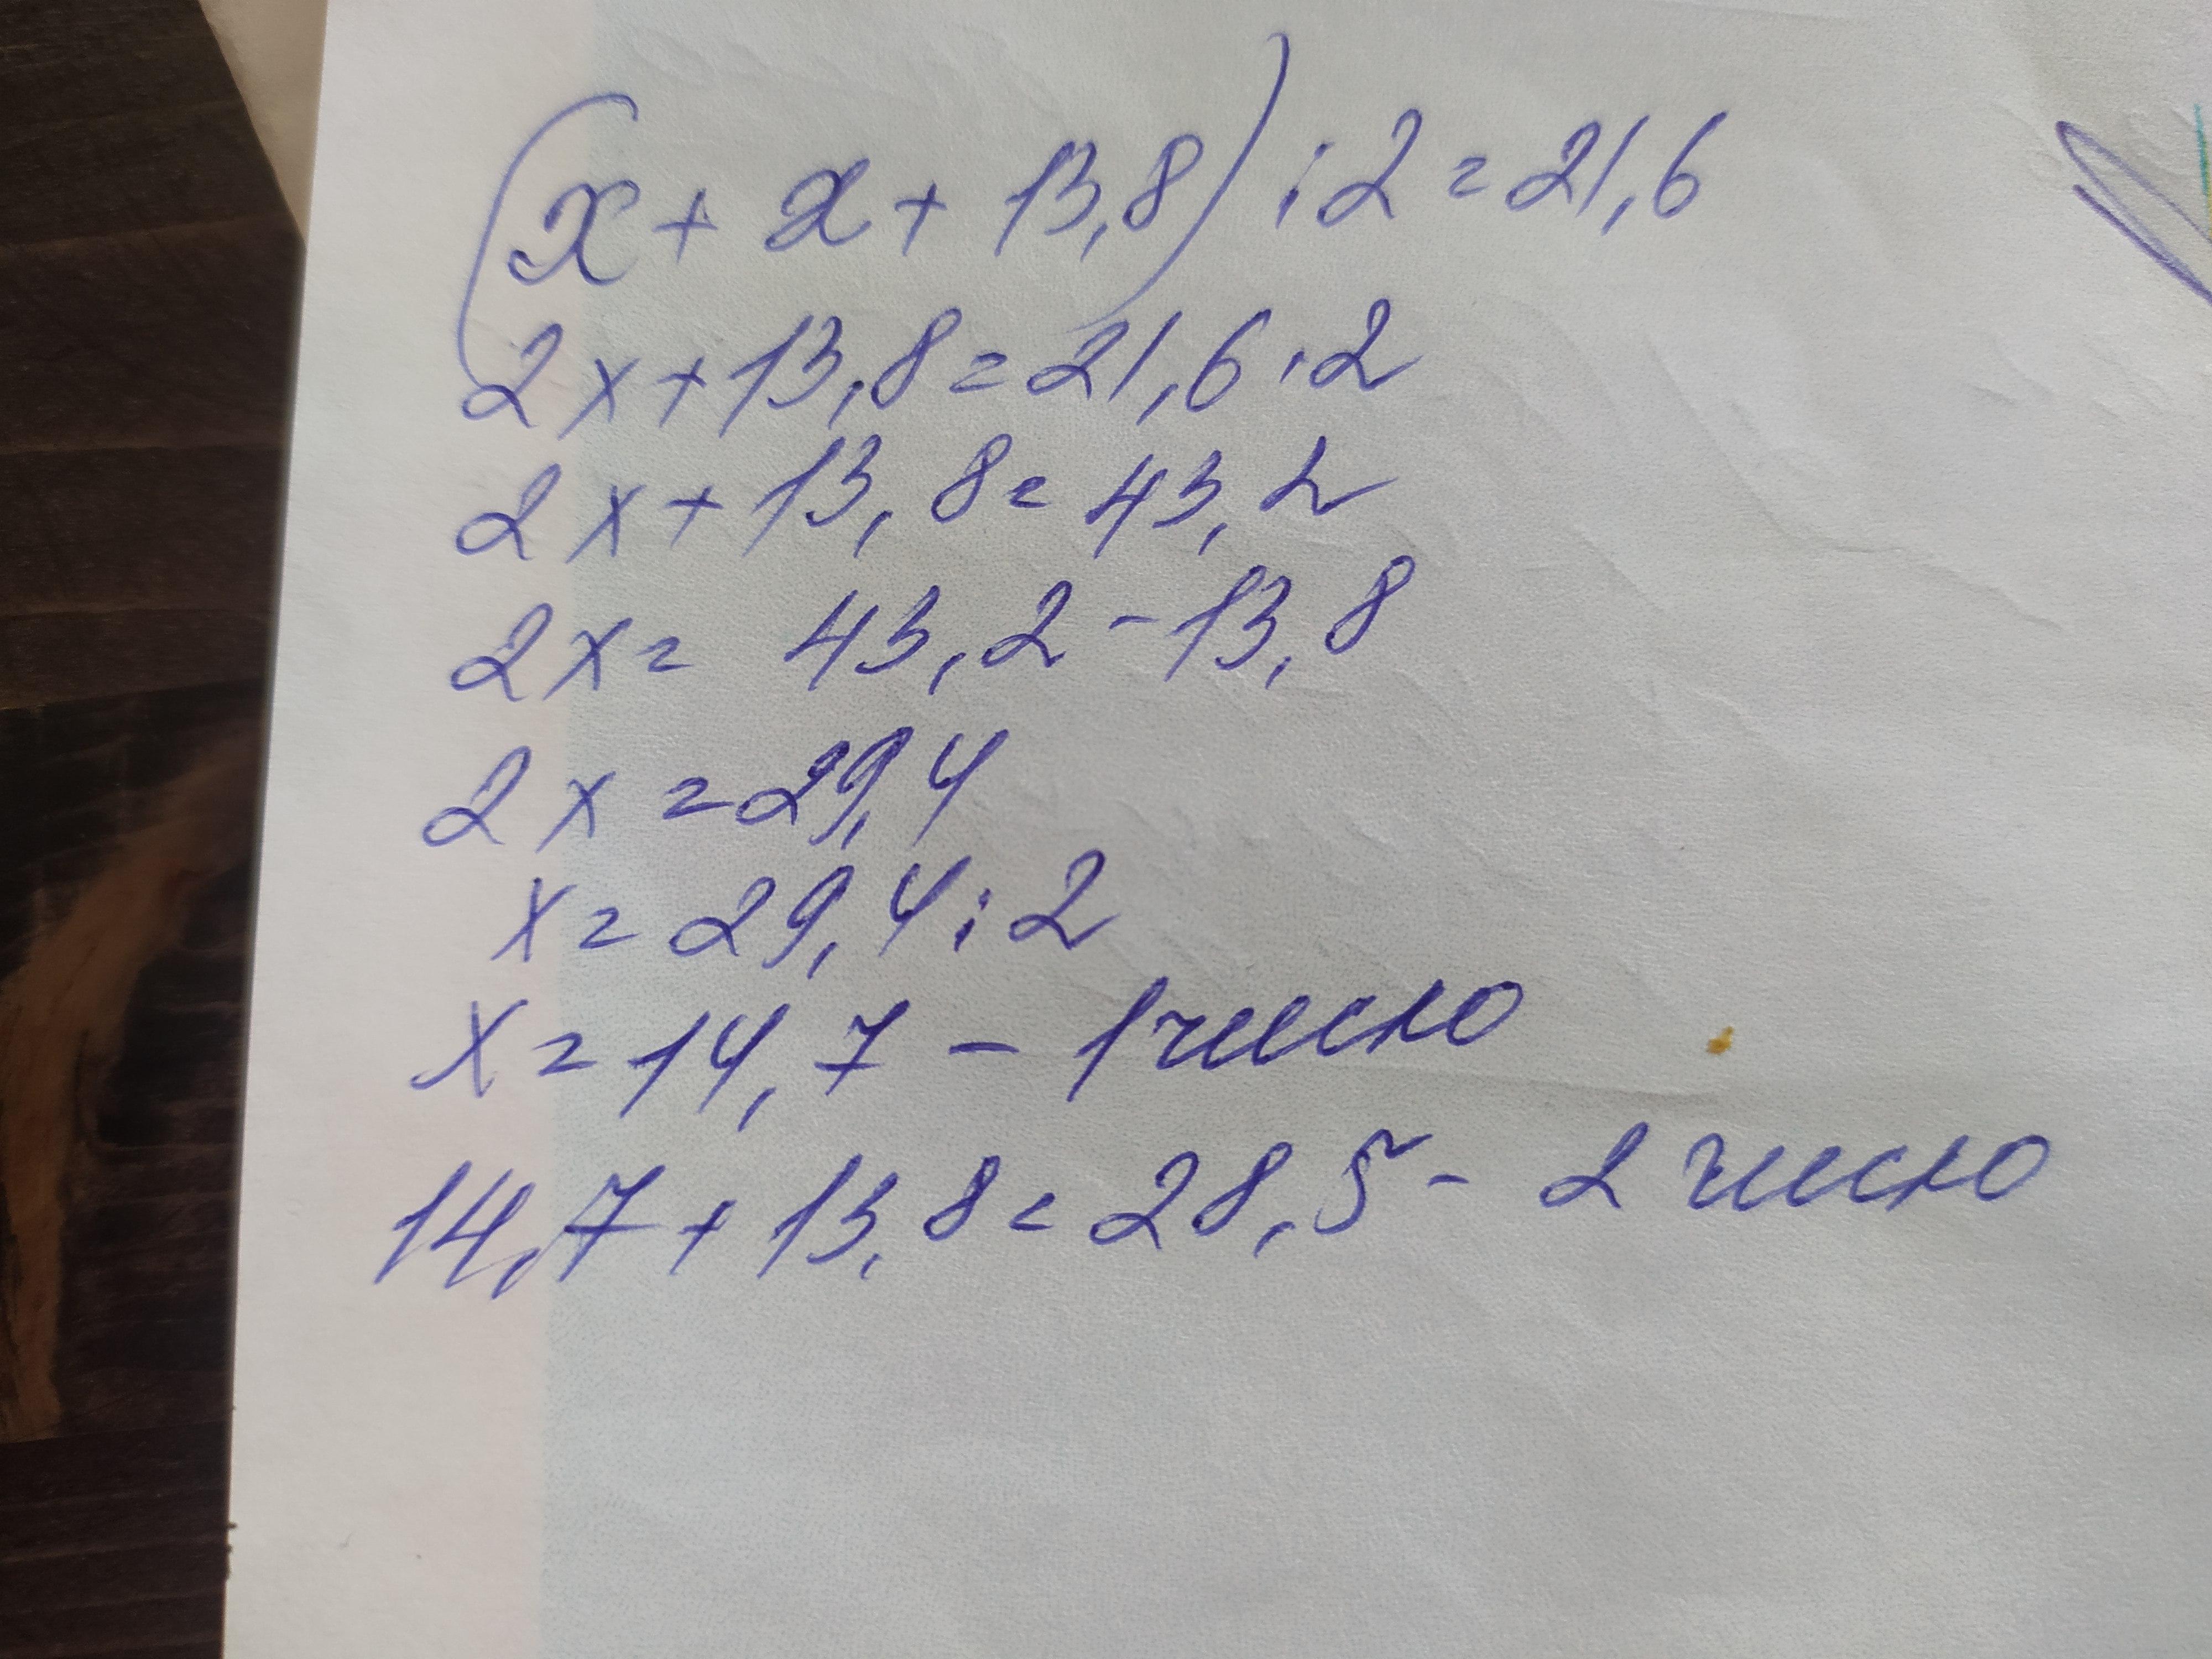 (x + x + 13,8) : 2 = 21,6
2x + 13,8 = 21,6 · 2
2x + 13,8 = 43,2
2x = 43,2 - 13,8
2x = 29,4
x = 29,4 : 2
x = 14,7 - 1 число
14,7 + 13,8 = 28,5 - 2 число